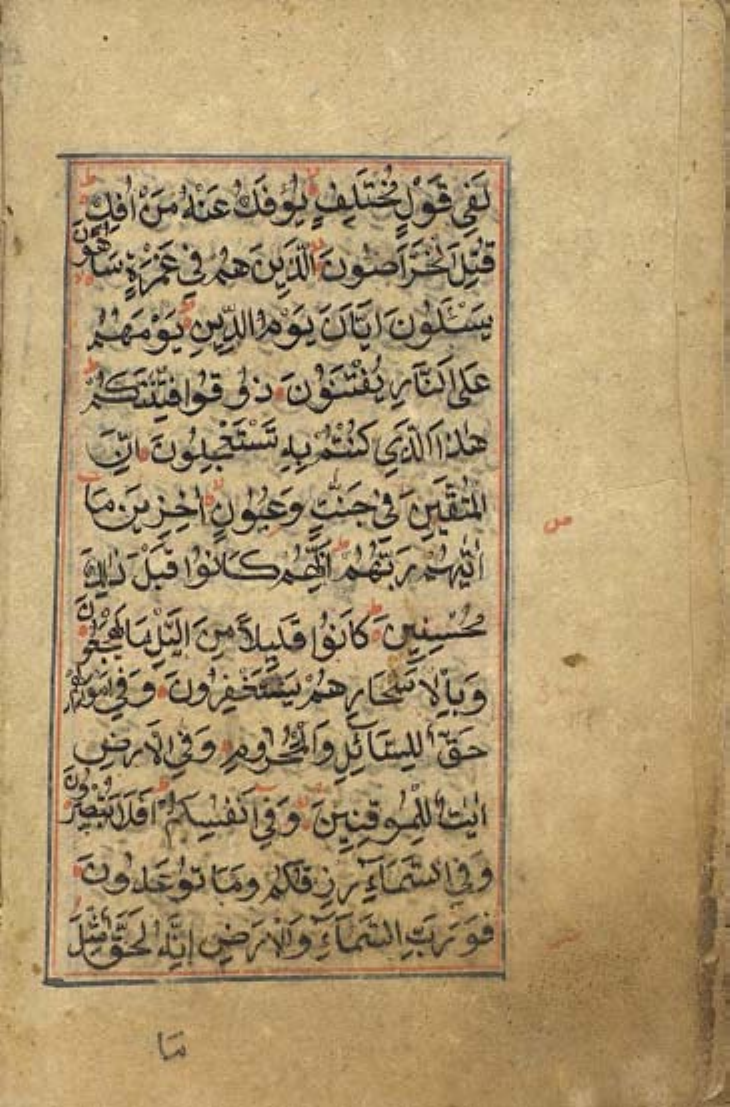 لَفِي قَوْلٍ مُخْتَلِفٍ يُؤْفَكُ عَنْهُ مَنْ أُفِكَ
قُتِلَ الْخَرَّاصُونَ الَّذِينَ هُمْ فِي غَمْرَةٍ سَاهُونَ
يَسْـَٔلُونَ اَيَّانَ يَوْمُ الدِّينِ يَوْمَهُمْ
عَلَى النَّارِ يُفْتَنُونَ ذُوقُوا فِتْنَتَكُمْ
هٰذَا الَّذِي كُنْتُمْ بِهِ تَسْتَعْجِلُونَ اِنَّ
الْمُتَّقِينَ فِي جَنّٰتٍ وَعُيُونٍ اٰخِذِينَ مَا
اٰتٰيهُمْ رَبُّهُمْ اِنَّهُمْ كَانُوا قَبْلَ ذٰلِكَ
مُحْسِنِينَ كَانُوا قَلِيلًا مِنَ الَّيْلِ مَا يَهْجَعُونَ
وَبِالْاَسْحَارِ هُمْ يَسْتَغْفِرُونَ وَفِي اَمْوَالِهِمْ
حَقٌّ لِلسَّائِلِ وَالْمَحْرُومِ وَفِي الْاَرْضِ
اٰيٰتٌ لِلْمُوقِنِينَ وَفِي اَنْفُسِكُمْ اَفَلَا تُبْصِرُونَ
وَفِي السَّمَاءِ رِزْقُكُمْ وَمَا تُوعَدُونَ
فَوَرَبِّ السَّمَاءِ وَالْاَرْضِ اِنَّهُ لَحَقٌّ مِثْلَ
مَا